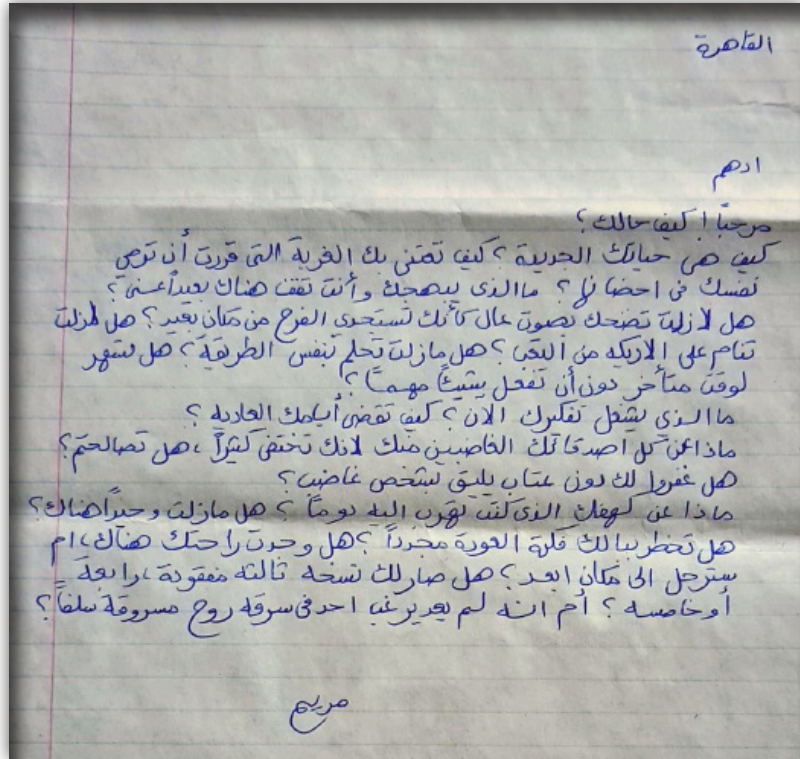 القاهرة
ادهم
مرحبًا ! كيف حالك ؟
كيف هي حياتك الجديدة ؟ كيف تعتنى بك الغربة التى قررت أن ترمي
نفسك فى احضانها ؟ ما الذى يبهجك وأنت تقف هناك بعيداً عنى ؟
هل لازلت تضحك بصوت عال كأنك تستجدى الفرح من مكان بعيد ؟ هل مازلت
تنام على الاريكه من التعب ؟ هل مازلت تحلم بنفس الطريقة ؟ هل تسهر
لوقت متأخر دون أن تفعل شيئًا مهمًا ؟
ما الذي يشغل تفكيرك الآن ؟ كيف تقضى أيامك العاديه ؟
ماذا عن كل اصدقائك الغاضبين منك لانك تختفى كثيراً ، هل تصالحتم ؟
هل غفروا لك دون عتاب يليق بشخص غاضب ؟
ماذا عن كهفك الذى كنت تهرب اليه دوماً ؟ هل مازلت وحيداً هناك ؟
هل تخطر ببالك فكرة العودة مجدداً ؟ هل وجدت راحتك هناك ، ام
سترحل الى مكان ابعد ؟ هل صار لك نسخه ثالثه مفقودة ، رابعة
أو خامسه ؟ أم انه لم يعد يرغب احد فى سرقه روح مسروقة سلفاً ؟
مريم